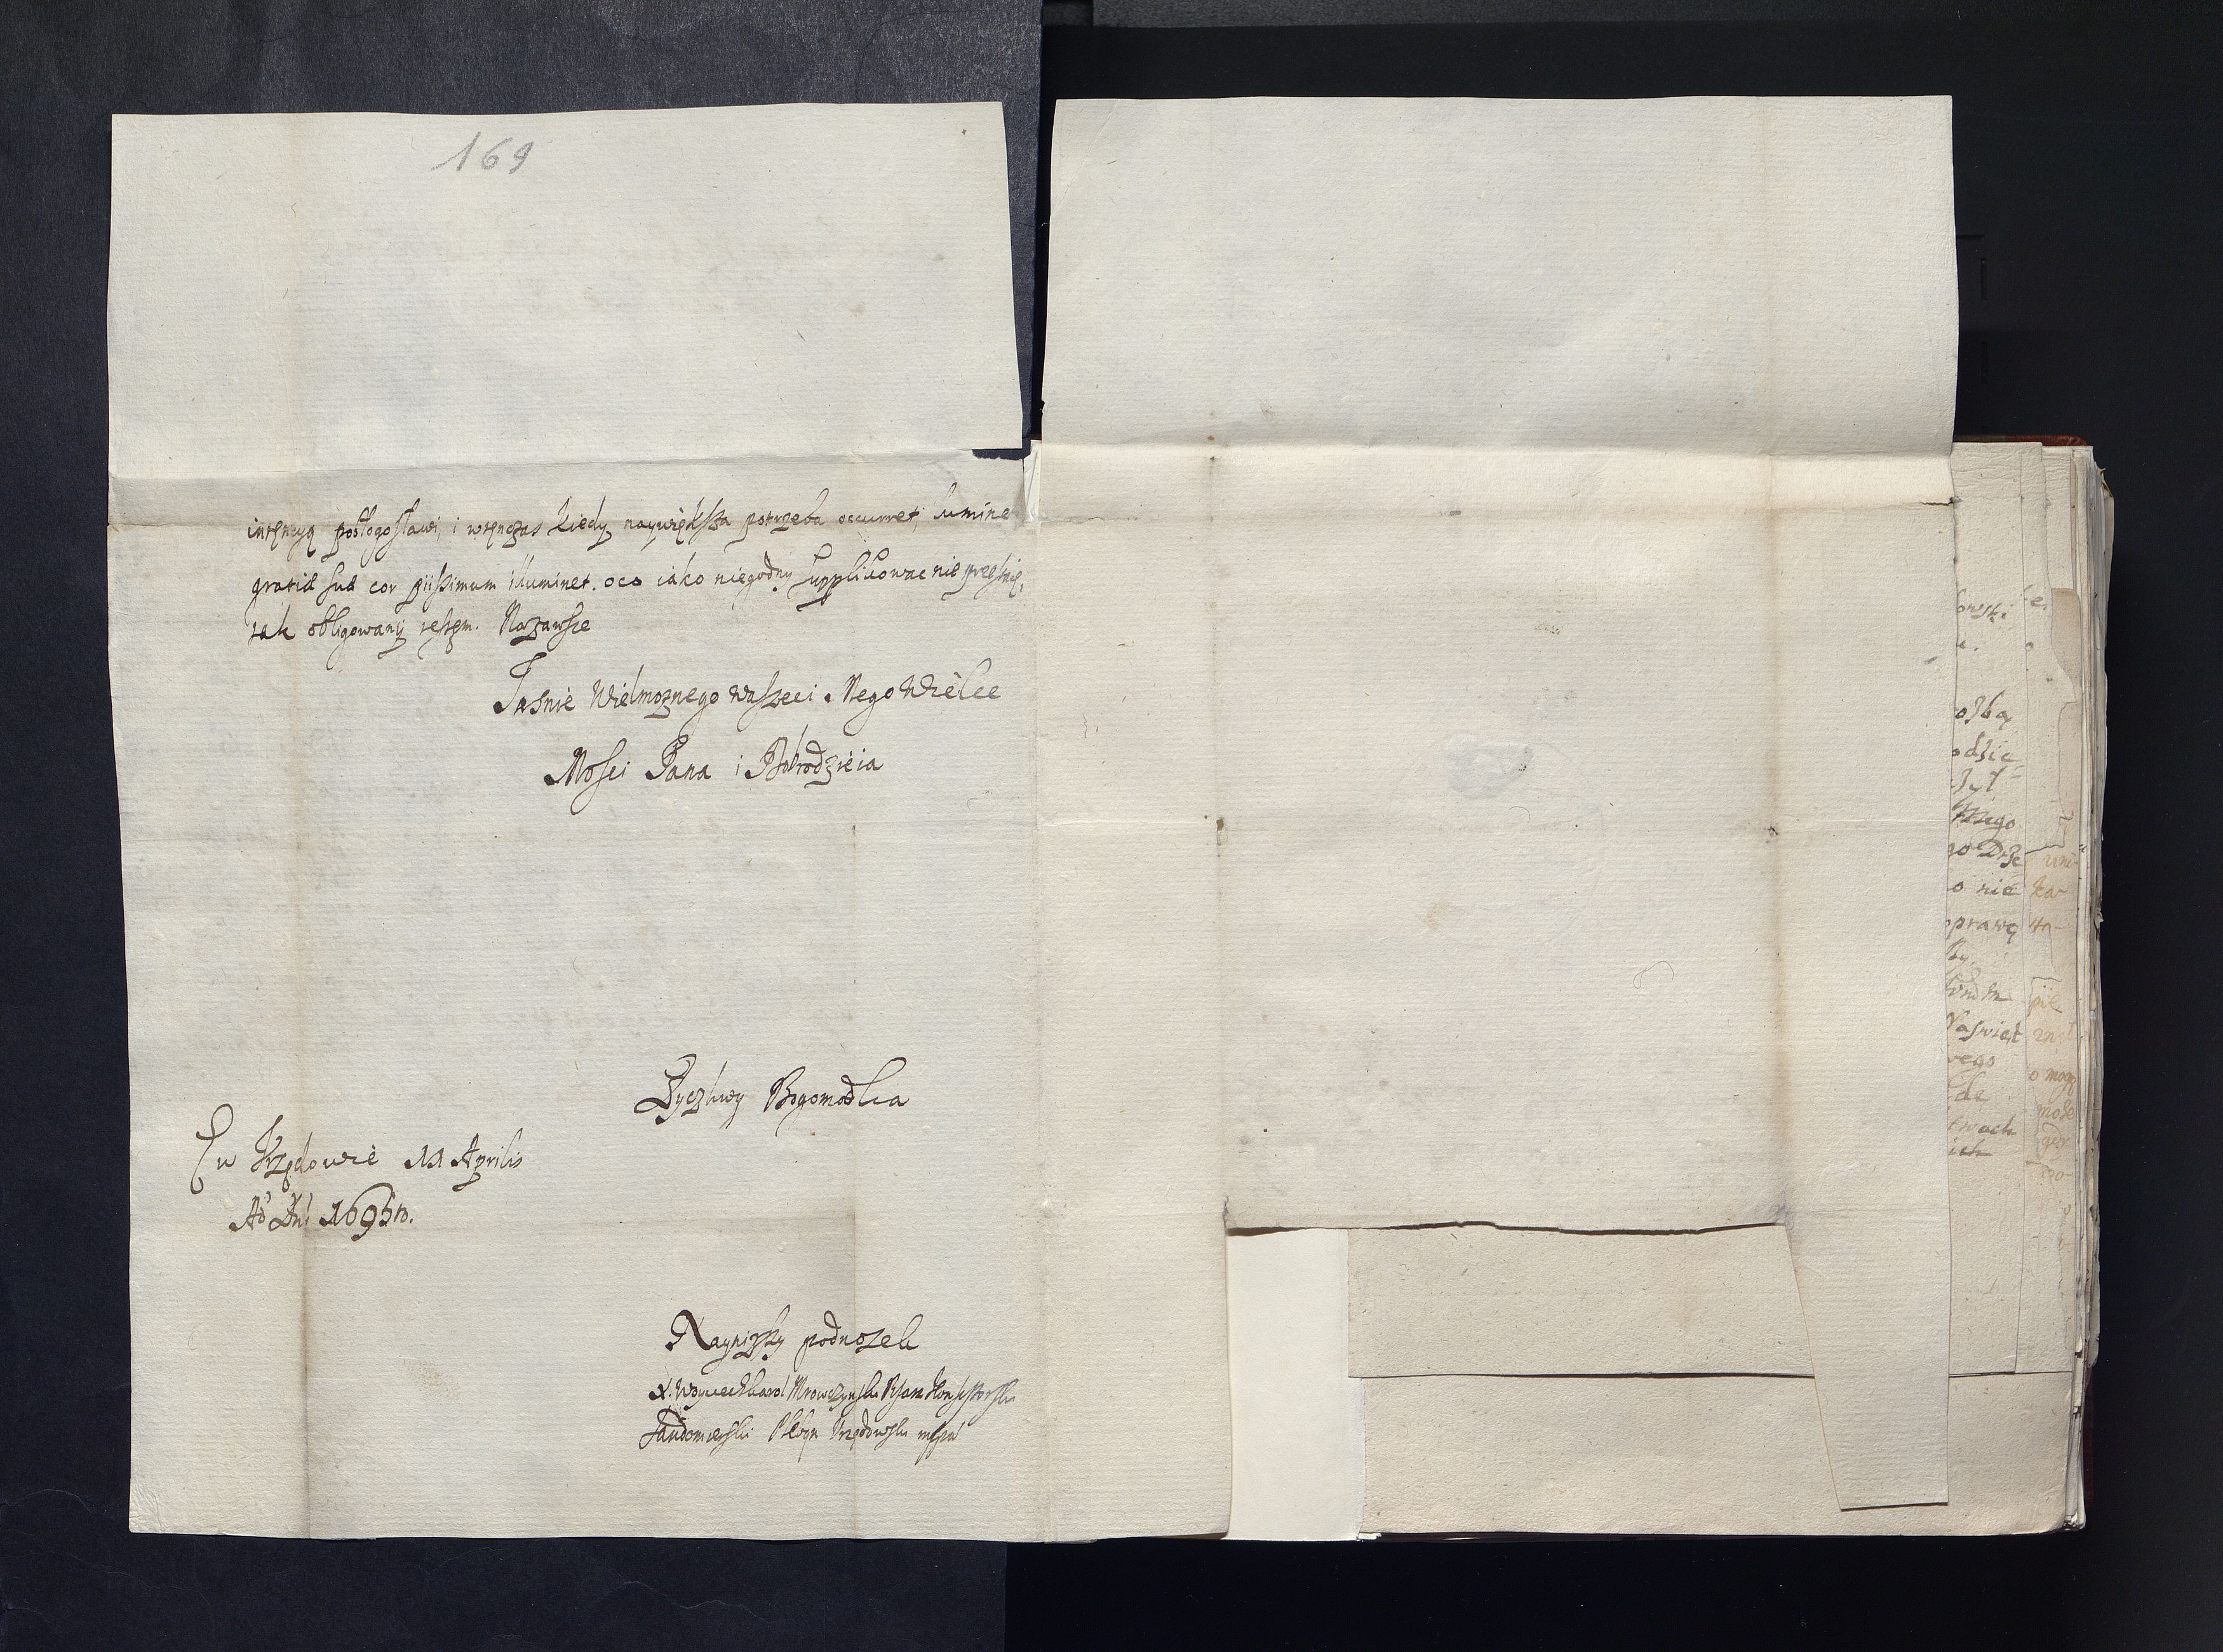 169
intęncyą pobłogosławi, i wtęnczas kiedy naywiększa potrzeba occurret, lumine
gratiæ suæ cor piissimum illuminet. oco iako niegodny supplikowac nie przestaię,
tak obligowany iestęm. Nazawsze
Jasnie Wielmoznego waszeci Mego Wielce
Mosci Pana i Dobrodzieia
Zyczliwy Bogomodlca
w Vrzędowie 11 Aprilis
Aº Dni 1695 to.
Nayniższy podnozek
X. Woyciech Karol Mrowczynski Pisarz Konsystorski
Sandomierski Pleban Vrzędowski mpr
owski
u.
ozbą
odzie
nie
prawę
Naswięt
wego
twach
ich
uni-
ka-
o mogą